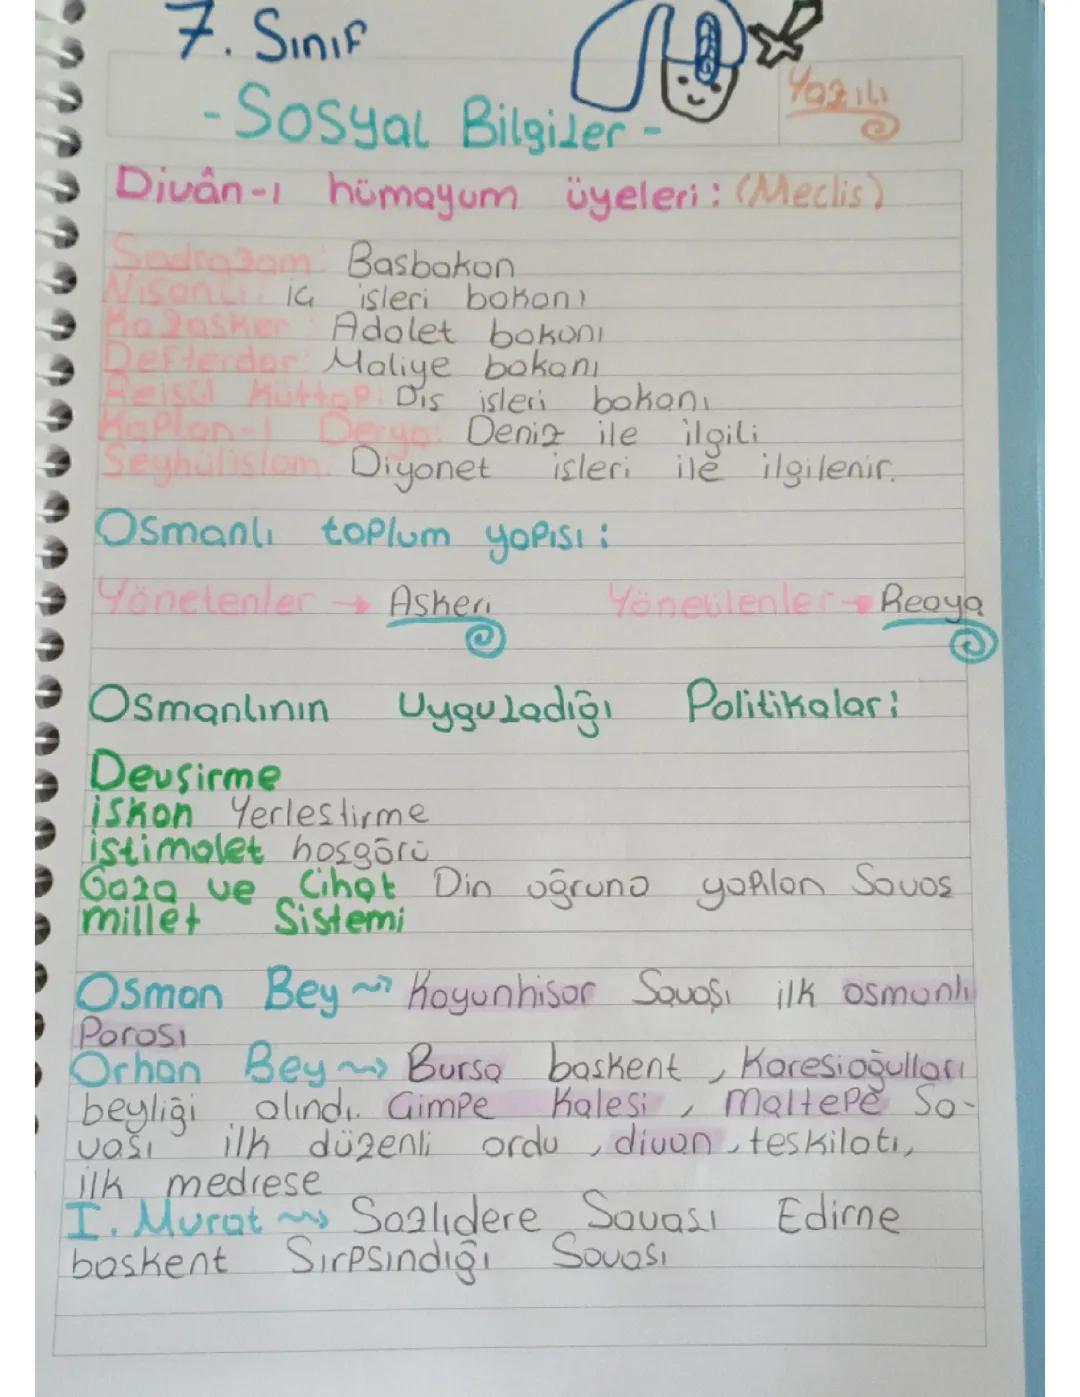 7. Sınıf
Yazılı
- Sosyal Bilgiler -
Divân-ı hümayum üyeleri: (Meclis)
Sadrazam: Basbakan
Nisancı: iç isleri bakanı
Kazasker: Adalet bakanı
Defterdar: Maliye bakanı
Reisül Küttap: Dıs isleri bakanı
Kaptan-ı Derya: Deniz ile ilgili
Seyhülislam: Diyanet isleri ile ilgilenir.
Osmanlı toplum yapısı:
Yönetenler → Askeri Yönetilenler → Reaya
Osmanlının Uyguladığı Politikalar:
Devşirme
iskan Yerlestirme
istimalet hosgörü
Gaza ve Cihat Din uğruna yapılan Savas
millet Sistemi
Osman Bey ~> Koyunhisar Savaşı ilk osmanlı
Parası
Orhan Bey ~> Bursa baskent, Karesioğulları
beyliği alındı. Çimpe Kalesi, Maltepe Sa-
vaşı ilk düzenli ordu, divan teskilatı,
ilk medrese
I. Murat ~> Sazlıdere Savası Edirne
baskent Sırpsındığı Savası